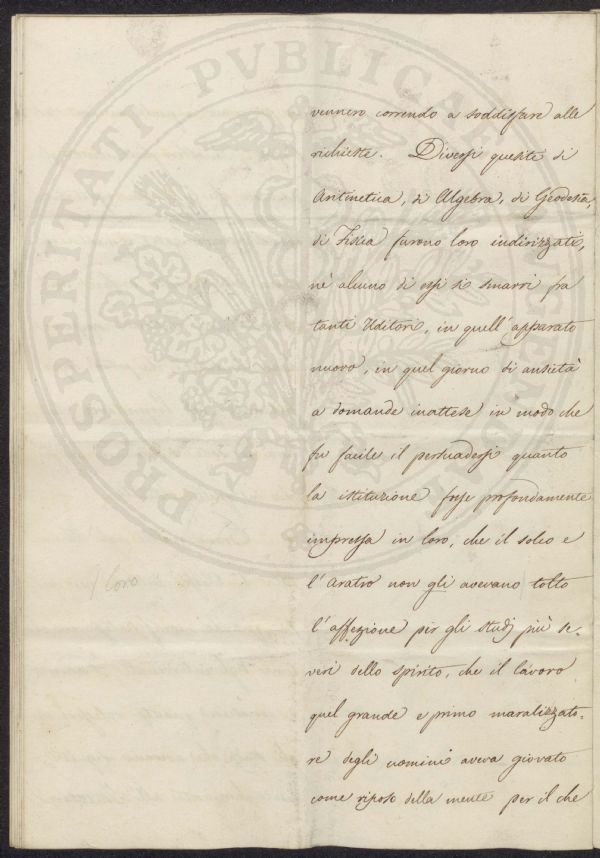 vennero correndo a soddisfare alle
richieste. Diversi quesiti di
Aritmetica, di Algebra, di Geodesia,
di Fisica furono loro indirizzati,
nè alcuno di essi si smarrì fra
tanti Uditori, in quell'apparato
nuovo, in quel giorno di ansietà
a domande inattese in modo che
fu facile il persuadersi quanto
la istituzione fosse profondamente
impressa in loro, che il solco e
l'aratro non gli avevano tolto
l'affezione per gli studj più se-
veri dello spirito, che il lavoro
quel grande e primo maralizzato-
re degli uomini aveva giovato
come riposo della mente per il che
/ loro
PROSPERITATI PVBLICAE